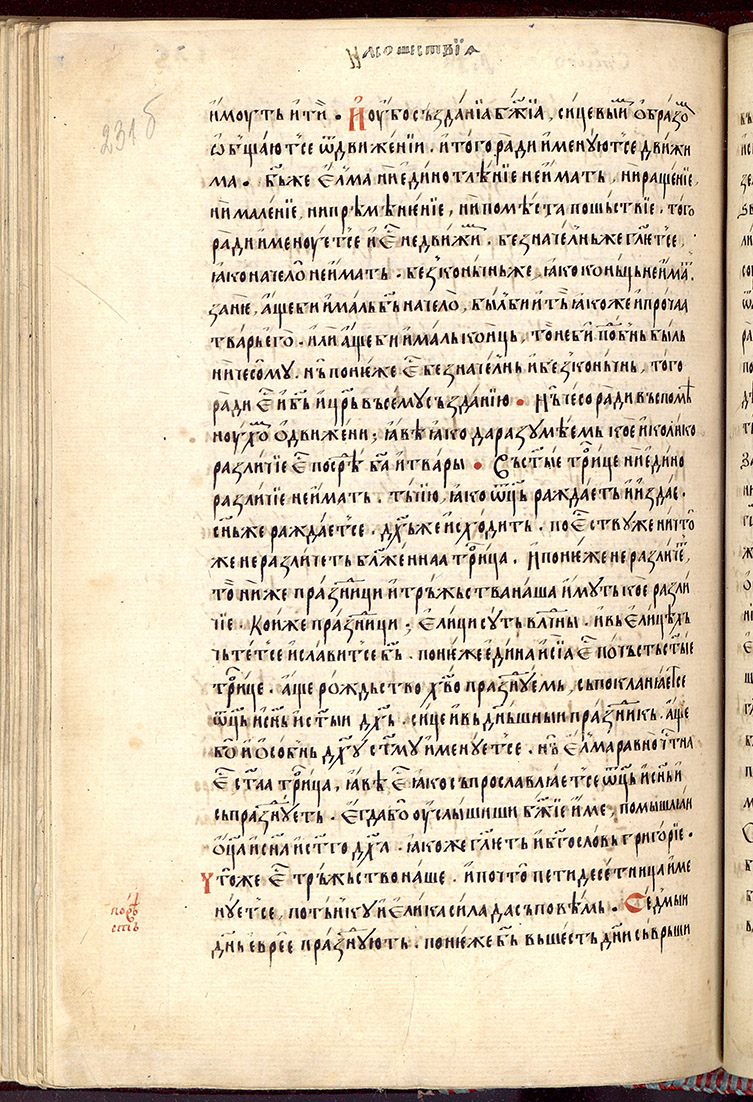 На сошествїа
231 б
и҆моуть и҆ти . И҆ оу҆бо създанїа бж҃їа , сицевыи ѡ҆бразѡ
ѡ҆бъщаютсе ѿ движенїи . и҆ того ради и҆менуютсе движи
ма . бь҃ же е҆лма ни е҆дино тлѣнїе не и҆мать , ни ращенїе ,
ни маленїе , ни прѣмѣненїе , ни по мѣста пошьствїе . того
ради и҆меноуе҆тсе и҆ є҆с҃ недвижи . безначелнь же гл҃етсе ,
ꙗко начело не и҆мать . бесконьчнь же , ꙗко коньць не и҆ма .
зане , а҆ще би и҆маль бь҃ начело , был би и҆ тъ ꙗкоже и҆ прочаа
тварь е҆го . и҆ли а҆ще би и҆маль конць , то не би по҆бнь быль
ничесому . нь понеже є҆с҃ безначелнь и҆ бесконьчнь , того
ради є҆с҃ и҆ бь҃ и҆ цр҃ь въсему създанїю . Нь чесо ради въспомѣ
ноухѡ ѡ҆ движени ; ꙗвѣ ꙗко да разумѣемь кое и҆ колико
различїе є҆с҃ посрѣ ба҃ и҆ твары . Съ ст҃ые трⷪ҇ице ни е҆дино
различїе не и҆мать . тъчїю , ꙗко ѿц҃ь раждаеть и҆ и҆здае .
сн҃ь же раждаетсе . дх҃ь же и҆сходить . по е҆ству же ничто
же не различеть бл҃женнаа трⷪ҇ица . И҆ понеже не различе ,
то ниже празници и҆ тръжьства наша и҆муть кое разли
чїе . Кои же празници ; е҆лици суть влⷣчны . и҆ вь е҆лицѣхь
чьтетсе и҆ славитсе бь҃ . понеже е҆дина и҆ сїа є҆с҃ почьсть ст҃ые
трⷪ҇ице . а҆ще рождьство хв҃о празнуемь , съпокланꙗетсе
ѿц҃ь и҆ сн҃ь и҆ ст҃ыи дх҃ь . сице и҆ вь днⷩьшныи празникь . а҆ще
бо и҆ ѡ҆собнь дх҃у ст҃му и҆менуетсе . нь е҆лма равночтⷭна
є҆с҃ ст҃аа трⷪ҇ица , ꙗвѣ є҆с҃ ꙗко съпрославлꙗетсе ѿц҃ь и҆ сн҃ь и҆
съпразнуеть . Е҆гда бо оу҆слышиши бж҃їе и҆ме , помышлꙗи
ѻ҆ц҃а и҆ сн҃а и҆ ст҃го дх҃а . ꙗкоже гл҃еть и҆ бг҃ословь григорїе .
Что же є҆с҃ тръжьство наше . и҆ почто петидесетница и҆ме
нуетсе , потьнку и҆ е҆лика сила да съповѣмь . Седмыи
дн҃ь е҆врее празнують . понеже бь҃ вь шесть дн҃и съврьши